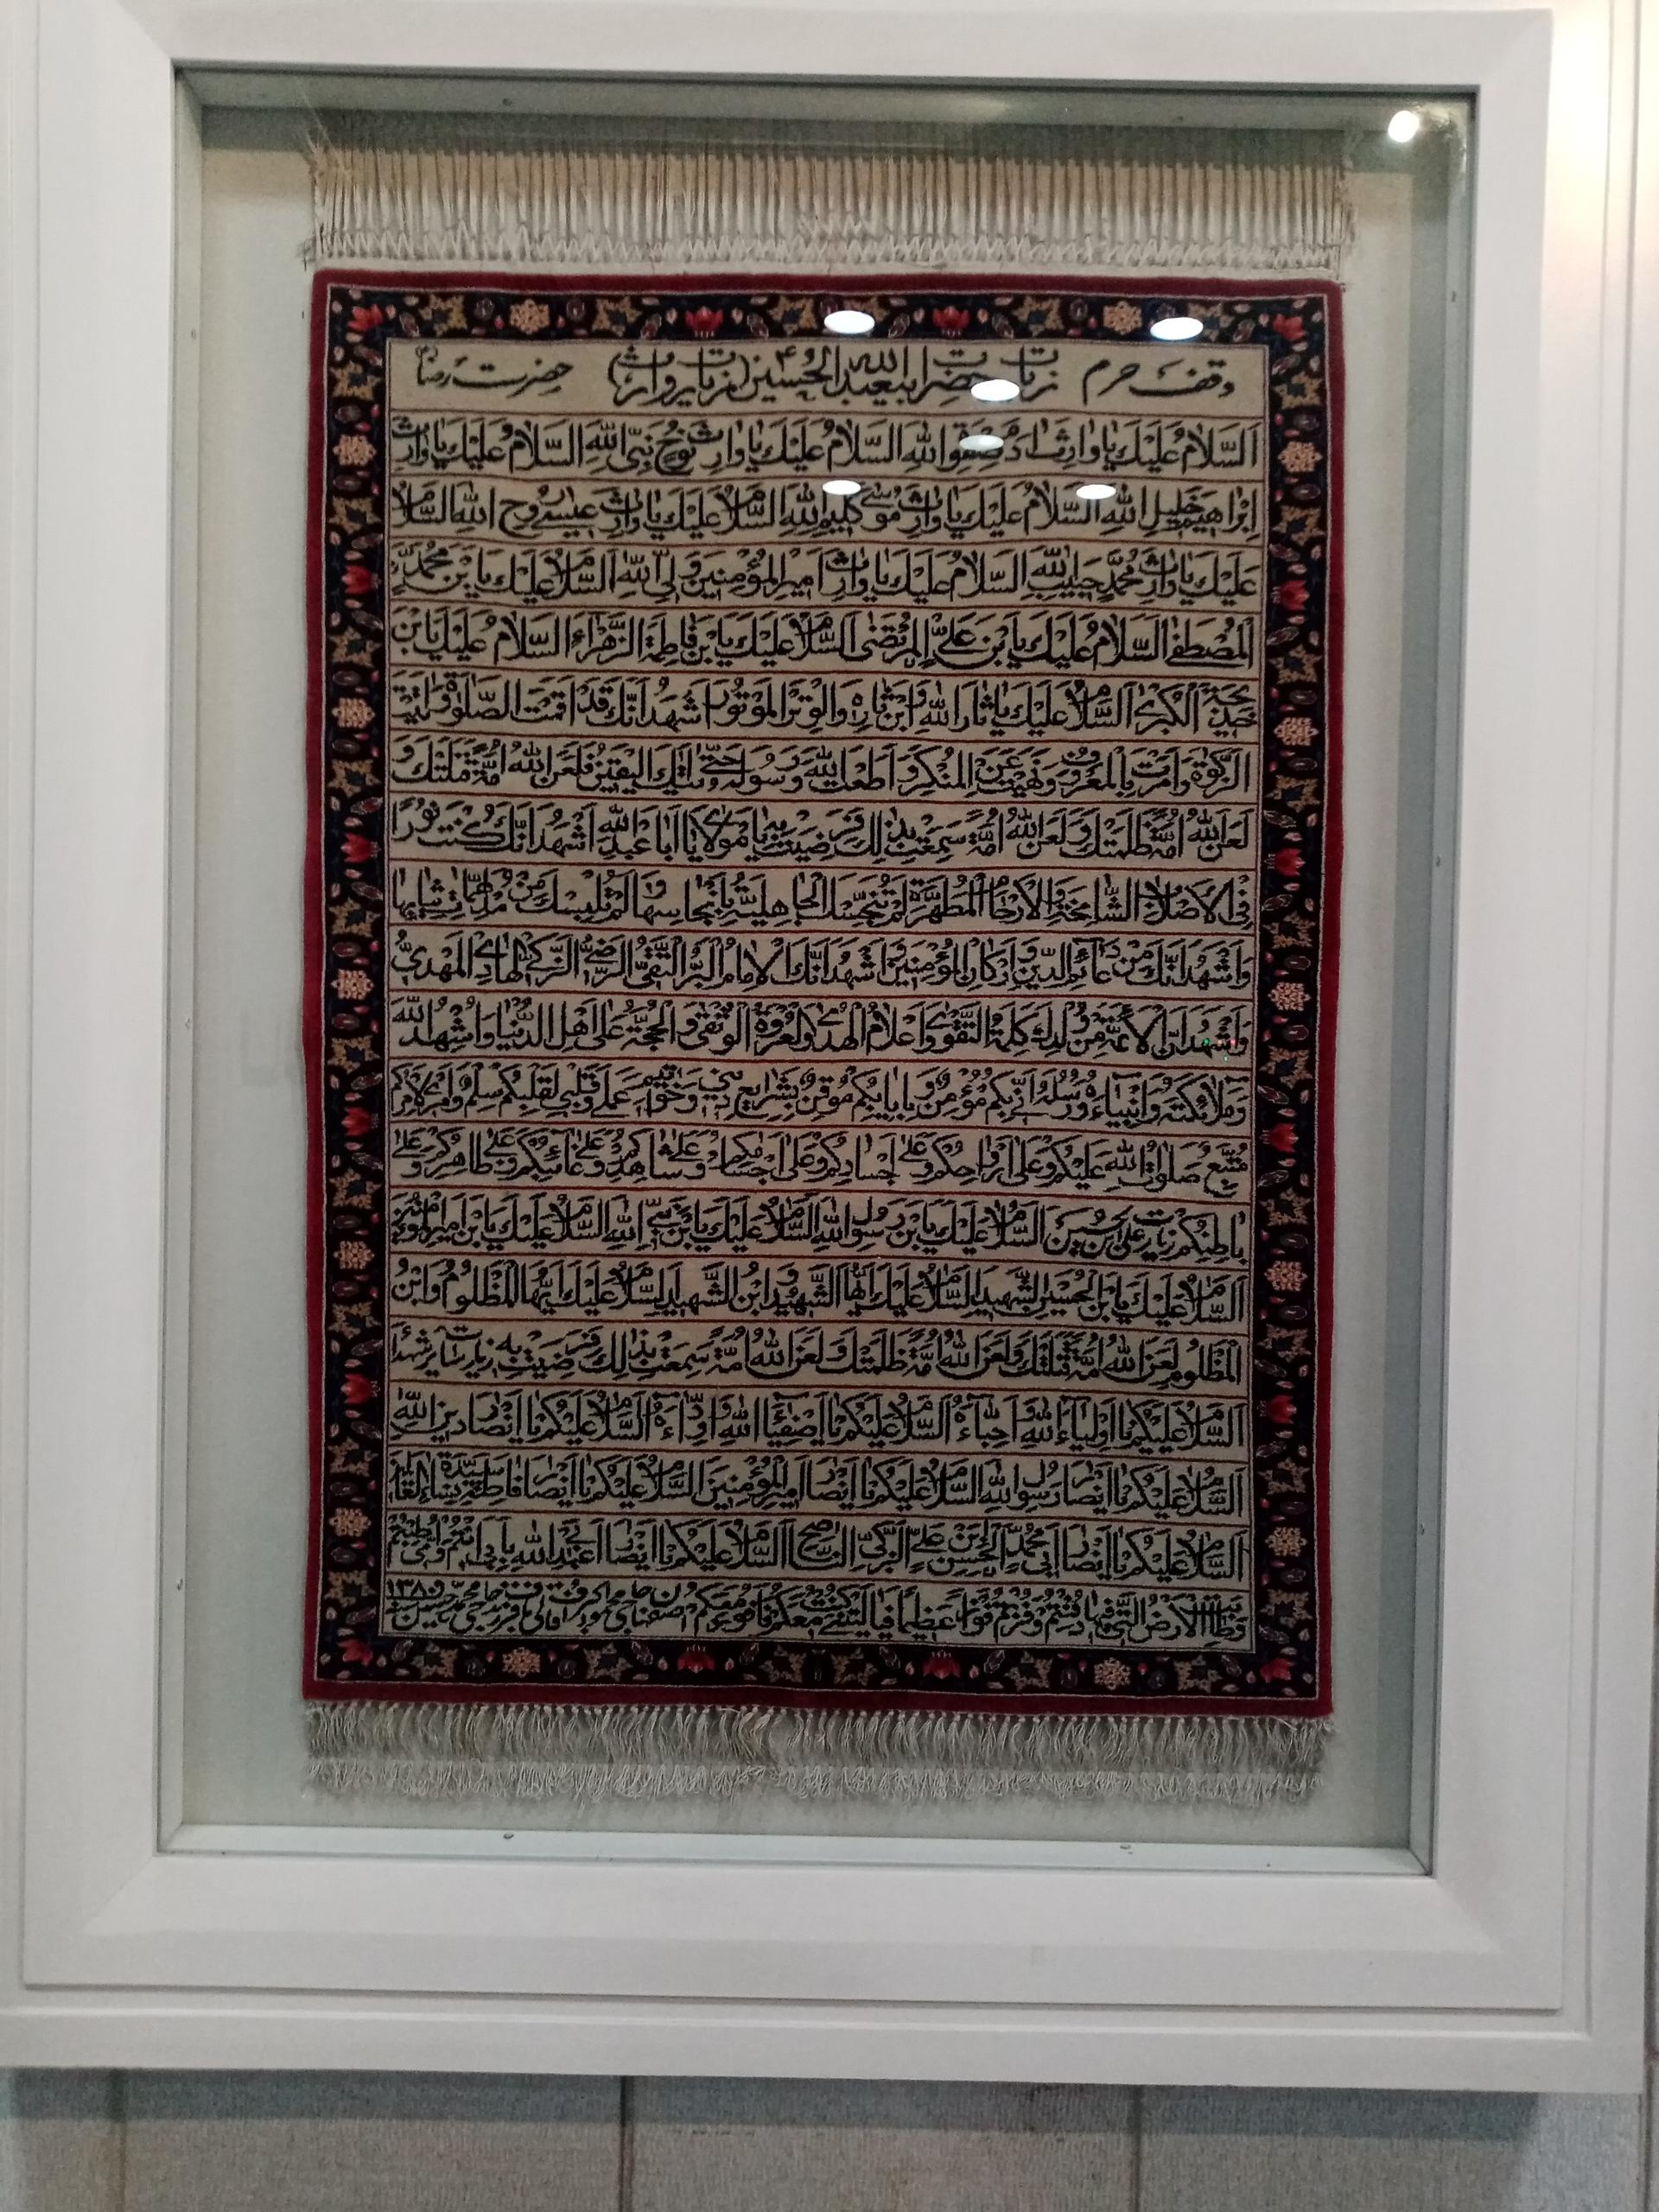 وقف حرم زیارت حضرت ابیعبدالله الحسین (زیارت وارث) حضرت رضا
اَلسَّلامُ عَلَیْكَ یا وارِثَ ادَمَ صَفْوَةِ اللهِ اَلسَّلامُ عَلَیْكَ یا وارِثَ نُوحٍ نَبِیِّ اللهِ اَلسَّلامُ عَلَیْكَ یا وارِثَ
اِبْراهیمَ خَلیلِ اللهِ اَلسَّلامُ عَلَیْكَ یا وارِثَ مُوسی كَلیمِ اللهِ اَلسَّلامُ عَلَیْكَ یا وارِثَ عیسی رُوحِ اللهِ اَلسَّلامُ
عَلَیْكَ یا وارِثَ مُحَمَّدٍ حَبیبِ اللهِ اَلسَّلامُ عَلَیْكَ یا وارِثَ اَمیرِ الْمُؤْمِنینَ وَلِیِّ اللهِ اَلسَّلامُ عَلَیْكَ یَابْنَ مُحَمَّدٍ
الْمُصْطَفی اَلسَّلامُ عَلَیْكَ یَابْنَ عَلِیٍّ الْمُرْتَضی اَلسَّلامُ عَلَیْكَ یَابْنَ فاطِمَةَ الزَّهْراءِ اَلسَّلامُ عَلَیْكَ یَابْنَ
خَدیجَةَ الْكُبْری اَلسَّلامُ عَلَیْكَ یا ثارَ اللهِ وَابْنَ ثارِهِ وَالْوِتْرَ الْمَوْتُورَ اَشْهَدُ اَنَّكَ قَدْ اَقَمْتَ الصَّلوةَ وَاتَیْتَ
الزَّكوةَ وَاَمَرْتَ بِالْمَعْرُوفِ وَنَهَیْتَ عَنِ الْمُنْكَرِ وَاَطَعْتَ اللهَ وَرَسُولَهُ حَتّی اَتیكَ الْیَقینُ فَلَعَنَ اللهُ اُمَّةً قَتَلَتْكَ وَ
لَعَنَ اللهُ اُمَّةً ظَلَمَتْكَ وَلَعَنَ اللهُ اُمَّةً سَمِعَتْ بِذلِكَ فَرَضِیَتْ بِهِ یا مَوْلایَ یا اَبا عَبْدِ اللهِ اَشْهَدُ اَنَّكَ كُنْتَ نُورًا
فِی الْاَصْلابِ الشّامِخَةِ وَالْاَرْحامِ الْمُطَهَّرَةِ لَمْ تُنَجِّسْكَ الْجاهِلِیَّةُ بِاَنْجاسِها وَلَمْ تُلْبِسْكَ مِنْ مُدْلَهِمّاتِ ثِیابِها
وَاَشْهَدُ اَنَّكَ مِنْ دَعائِمِ الدّینِ وَاَرْكانِ الْمُؤْمِنینَ وَاَشْهَدُ اَنَّكَ الْاِمامُ الْبَرُّ التَّقِیُّ الرَّضِیُّ الزَّكِیُّ الْهادِی الْمَهْدِیُّ
وَاَشْهَدُ اَنَّ الْاَئِمَّةَ مِنْ وُلْدِكَ كَلِمَةُ التَّقْوی وَاَعْلامُ الْهُدی وَالْعُرْوَةُ الْوُثْقی وَالْحُجَّةُ عَلی اَهْلِ الدُّنْیا وَاُشْهِدُ اللهَ
وَمَلائِكَتَهُ وَاَنْبِیاءَهُ وَرُسُلَهُ اَنّی بِكُمْ مُؤْمِنٌ وَبِاِیابِكُمْ مُوقِنٌ بِشَرایِعِ دینی وَخَواتیمِ عَمَلی وَقَلْبی لِقَلْبِكُمْ سِلْمٌ وَاَمْری لِاَمْرِكُمْ
مُتَّبِعٌ صَلَواتُ اللهِ عَلَیْكُمْ وَعَلی اَرْواحِكُمْ وَعَلی اَجْسادِكُمْ وَعَلی اَجْسامِكُمْ وَعَلی شاهِدِكُمْ وَعَلی غائِبِكُمْ وَعَلی ظاهِرِكُمْ وَعَلی
باطِنِكُمْ زیارت علی بن حسین اَلسَّلامُ عَلَیْكَ یَابْنَ رَسُولِ اللهِ اَلسَّلامُ عَلَیْكَ یَابْنَ نَبِیِّ اللهِ اَلسَّلامُ عَلَیْكَ یَابْنَ اَمیرِ الْمُؤْمِنینَ
اَلسَّلامُ عَلَیْكَ یَابْنَ الْحُسَیْنِ الشَّهیدِ اَلسَّلامُ عَلَیْكَ اَیُّهَا الشَّهیدُ وَابْنُ الشَّهیدِ اَلسَّلامُ عَلَیْكَ اَیُّهَا الْمَظْلُومُ وَابْنُ
الْمَظْلُومِ لَعَنَ اللهُ اُمَّةً قَتَلَتْكَ وَلَعَنَ اللهُ اُمَّةً ظَلَمَتْكَ وَلَعَنَ اللهُ اُمَّةً سَمِعَتْ بِذلِكَ فَرَضِیَتْ بِهِ زیارت سایر شهدا
اَلسَّلامُ عَلَیْكُمْ یا اَوْلِیاءَ اللهِ وَاَحِبّاءَهُ اَلسَّلامُ عَلَیْكُمْ یا اَصْفِیاءَ اللهِ وَاَوِدّاءَهُ اَلسَّلامُ عَلَیْكُمْ یا اَنْصارَ دینِ اللهِ
اَلسَّلامُ عَلَیْكُمْ یا اَنْصارَ رَسُولِ اللهِ اَلسَّلامُ عَلَیْكُمْ یا اَنْصارَ اَمیرِ الْمُؤْمِنینَ اَلسَّلامُ عَلَیْكُمْ یا اَنْصارَ فاطِمَةَ سَیِّدَةِ نِساءِ الْعالَمینَ
اَلسَّلامُ عَلَیْكُمْ یا اَنْصارَ اَبی مُحَمَّدٍ الْحَسَنِ بْنِ عَلِیٍّ الزَّكِیِّ النّاصِحِ اَلسَّلامُ عَلَیْكُمْ یا اَنْصارَ اَبی عَبْدِ اللهِ بِاَبی اَنْتُمْ وَاُمّی طِبْتُمْ
وَطابَتِ الْاَرْضُ الَّتی فیها دُفِنْتُمْ وَفُزْتُمْ فَوْزًا عَظیمًا فَیا لَیْتَنی كُنْتُ مَعَكُمْ فَاَفُوزَ مَعَكُمْ ۱۳۸۰